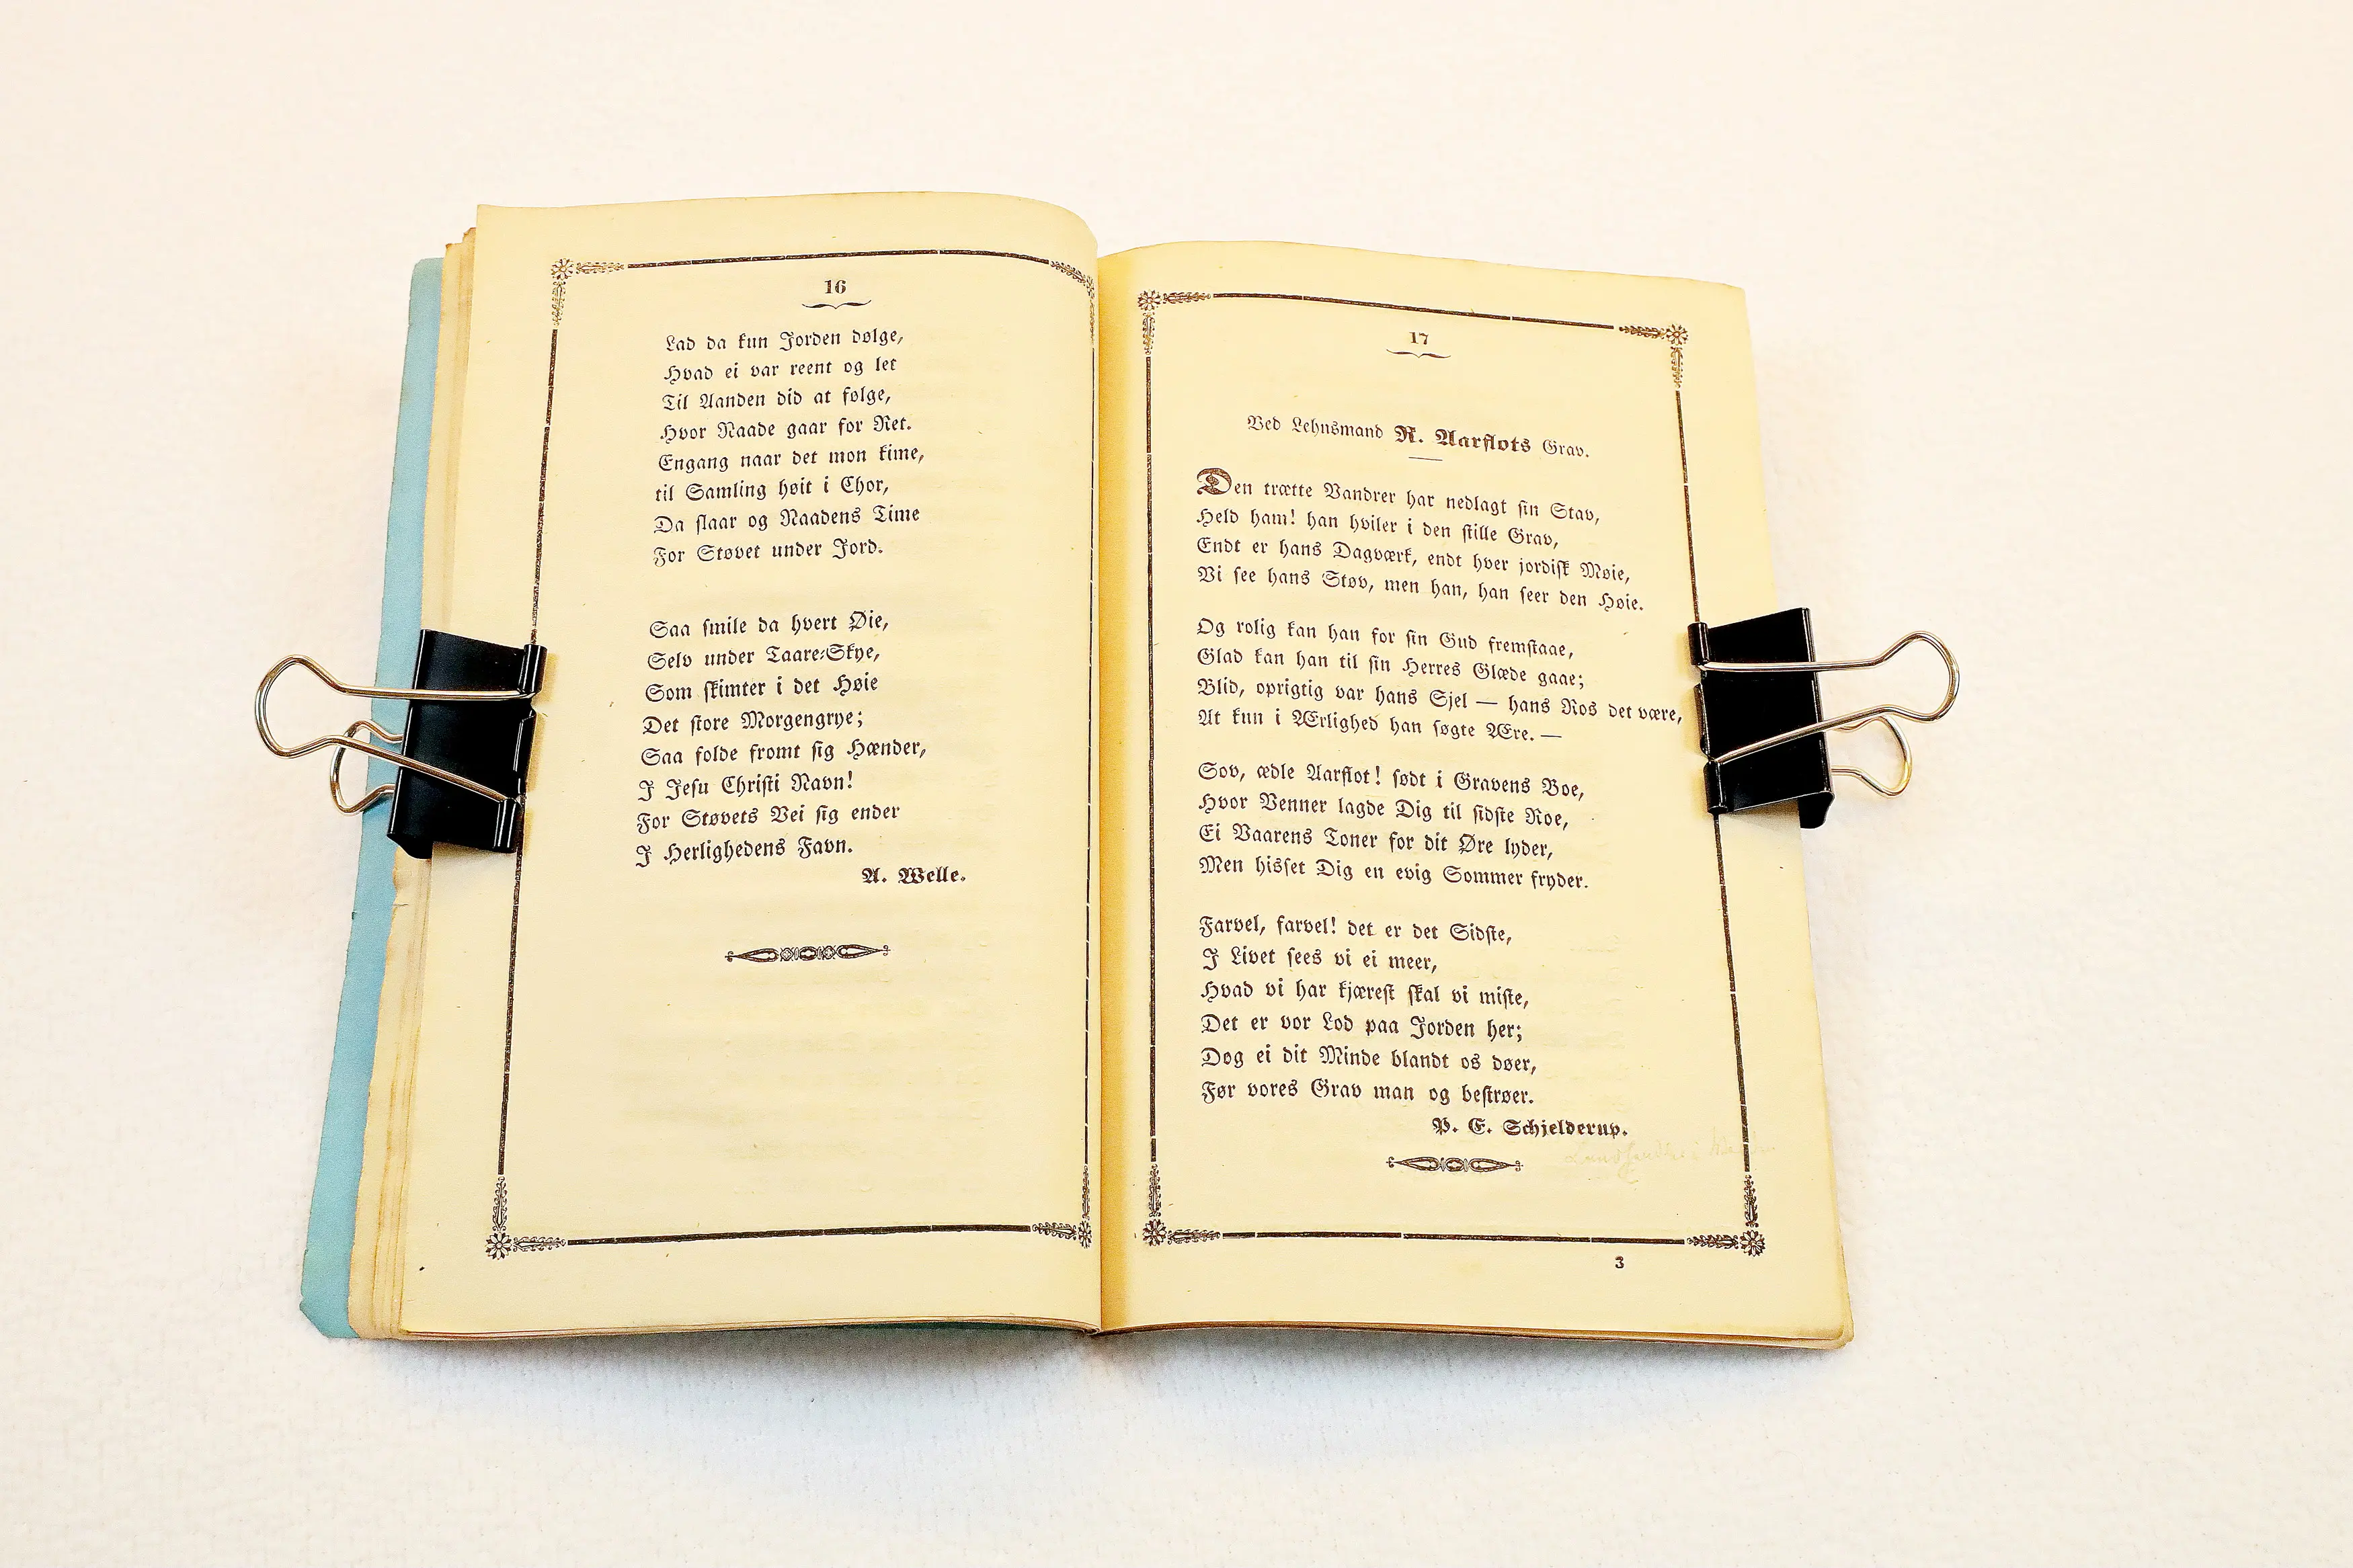 16
Lad da kun Jorden dølge,
Hvad ei var reent og let
Til Aanden did at følge,
Hvor Naade gaar for Ret.
Engang naar det mon kime,
til Samling høit i Chor,
Da slaar og Naadens Time
For Støvet under Jord.
Saa smile da hvert Øie,
Selv under Taare-Skye,
Som skimter i det Høie
Det store Morgengrye;
Saa folde fromt sig Hænder,
I Jesu Christi Navn!
For Støvets Vei sig ender
I Herlighedens Favn.
A. Welle.
17
Ved Lehnsmand R. Aarflots Grav.
Den trætte Vandrer har nedlagt sin Stav,
Held ham! han hviler i den stille Grav,
Endt er hans Dagværk, endt hver jordisk Møie,
Vi see hans Støv, men han, han seer den Høie.
Og rolig kan han for sin Gud fremstaae,
Glad kan han til sin Herres Glæde gaae;
Blid, oprigtig var hans Sjel — hans Ros det være,
At kun i Ærlighed han søgte Ære. —
Sov, ædle Aarflot! sødt i Gravens Boe,
Hvor Venner lagde Dig til sidste Roe,
Ei Vaarens Toner for dit Øre lyder,
Men hisset Dig en evig Sommer fryder.
Farvel, farvel! det er det Sidste,
I Livet sees vi ei meer,
Hvad vi har kjærest skal vi miste,
Det er vor Lod paa Jorden her;
Dog ei dit Minde blandt os døer,
Før vores Grav man og bestrøer.
P. E. Schjelderup.
3